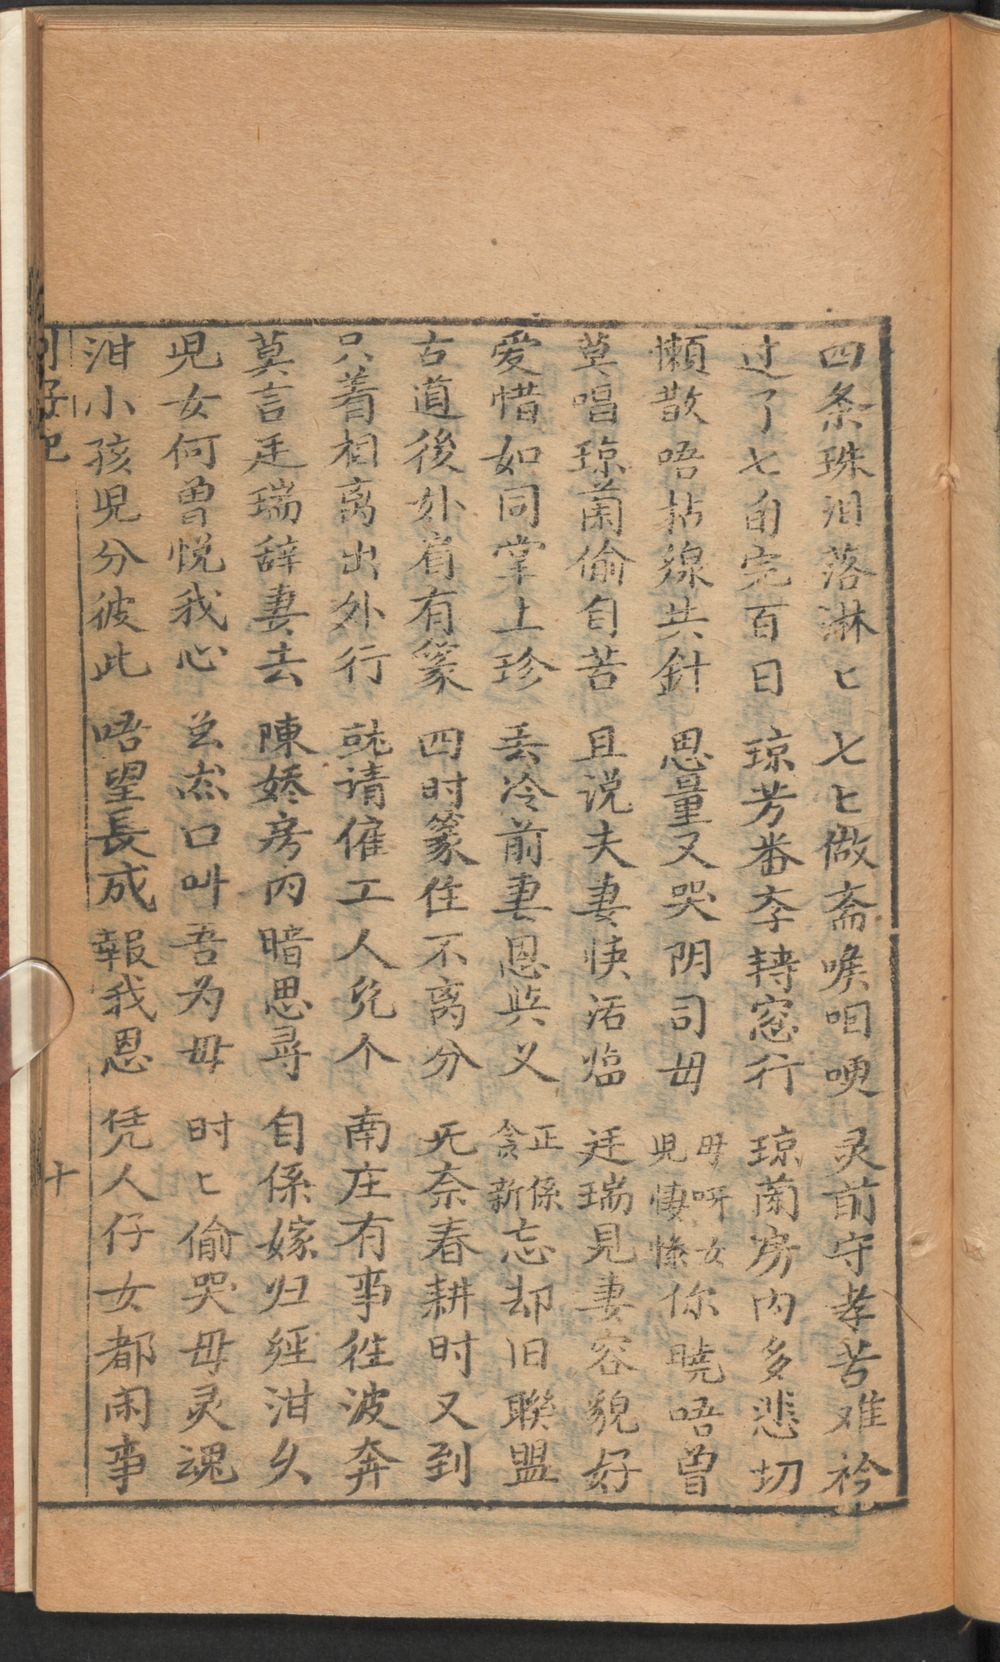 四条珠泪落淋匕 七匕做斋喉咽哽 灵前守孝苦难衿
过了七旬完百日 琼芳番李轉窓行 琼蘭房内多悲切
懶散唔拈線共針 思量又哭阴司毋 毋呀女兒悽慘你曉唔曾
莫唱琼蘭偷自苦 且说夫妻快活临 廷瑞見妻容貌好
爱惜如同掌上珍 丢冷前妻恩共义 正係贪新忘却旧聯盟
古道後外肴有篆 四时篆住不离分 无奈春耕时又到
只着相离出外行 就请催工人几个 南庄有事往波奔
莫言廷瑞辞妻去 陳娇房内暗思尋 自係嫁归經泔久
児女何曾悦我心 虽然口叫吾为毋 时匕偷哭毋灵魂
泔小孩児分彼此 唔望長成報我恩 凭人仔女都闲事
十